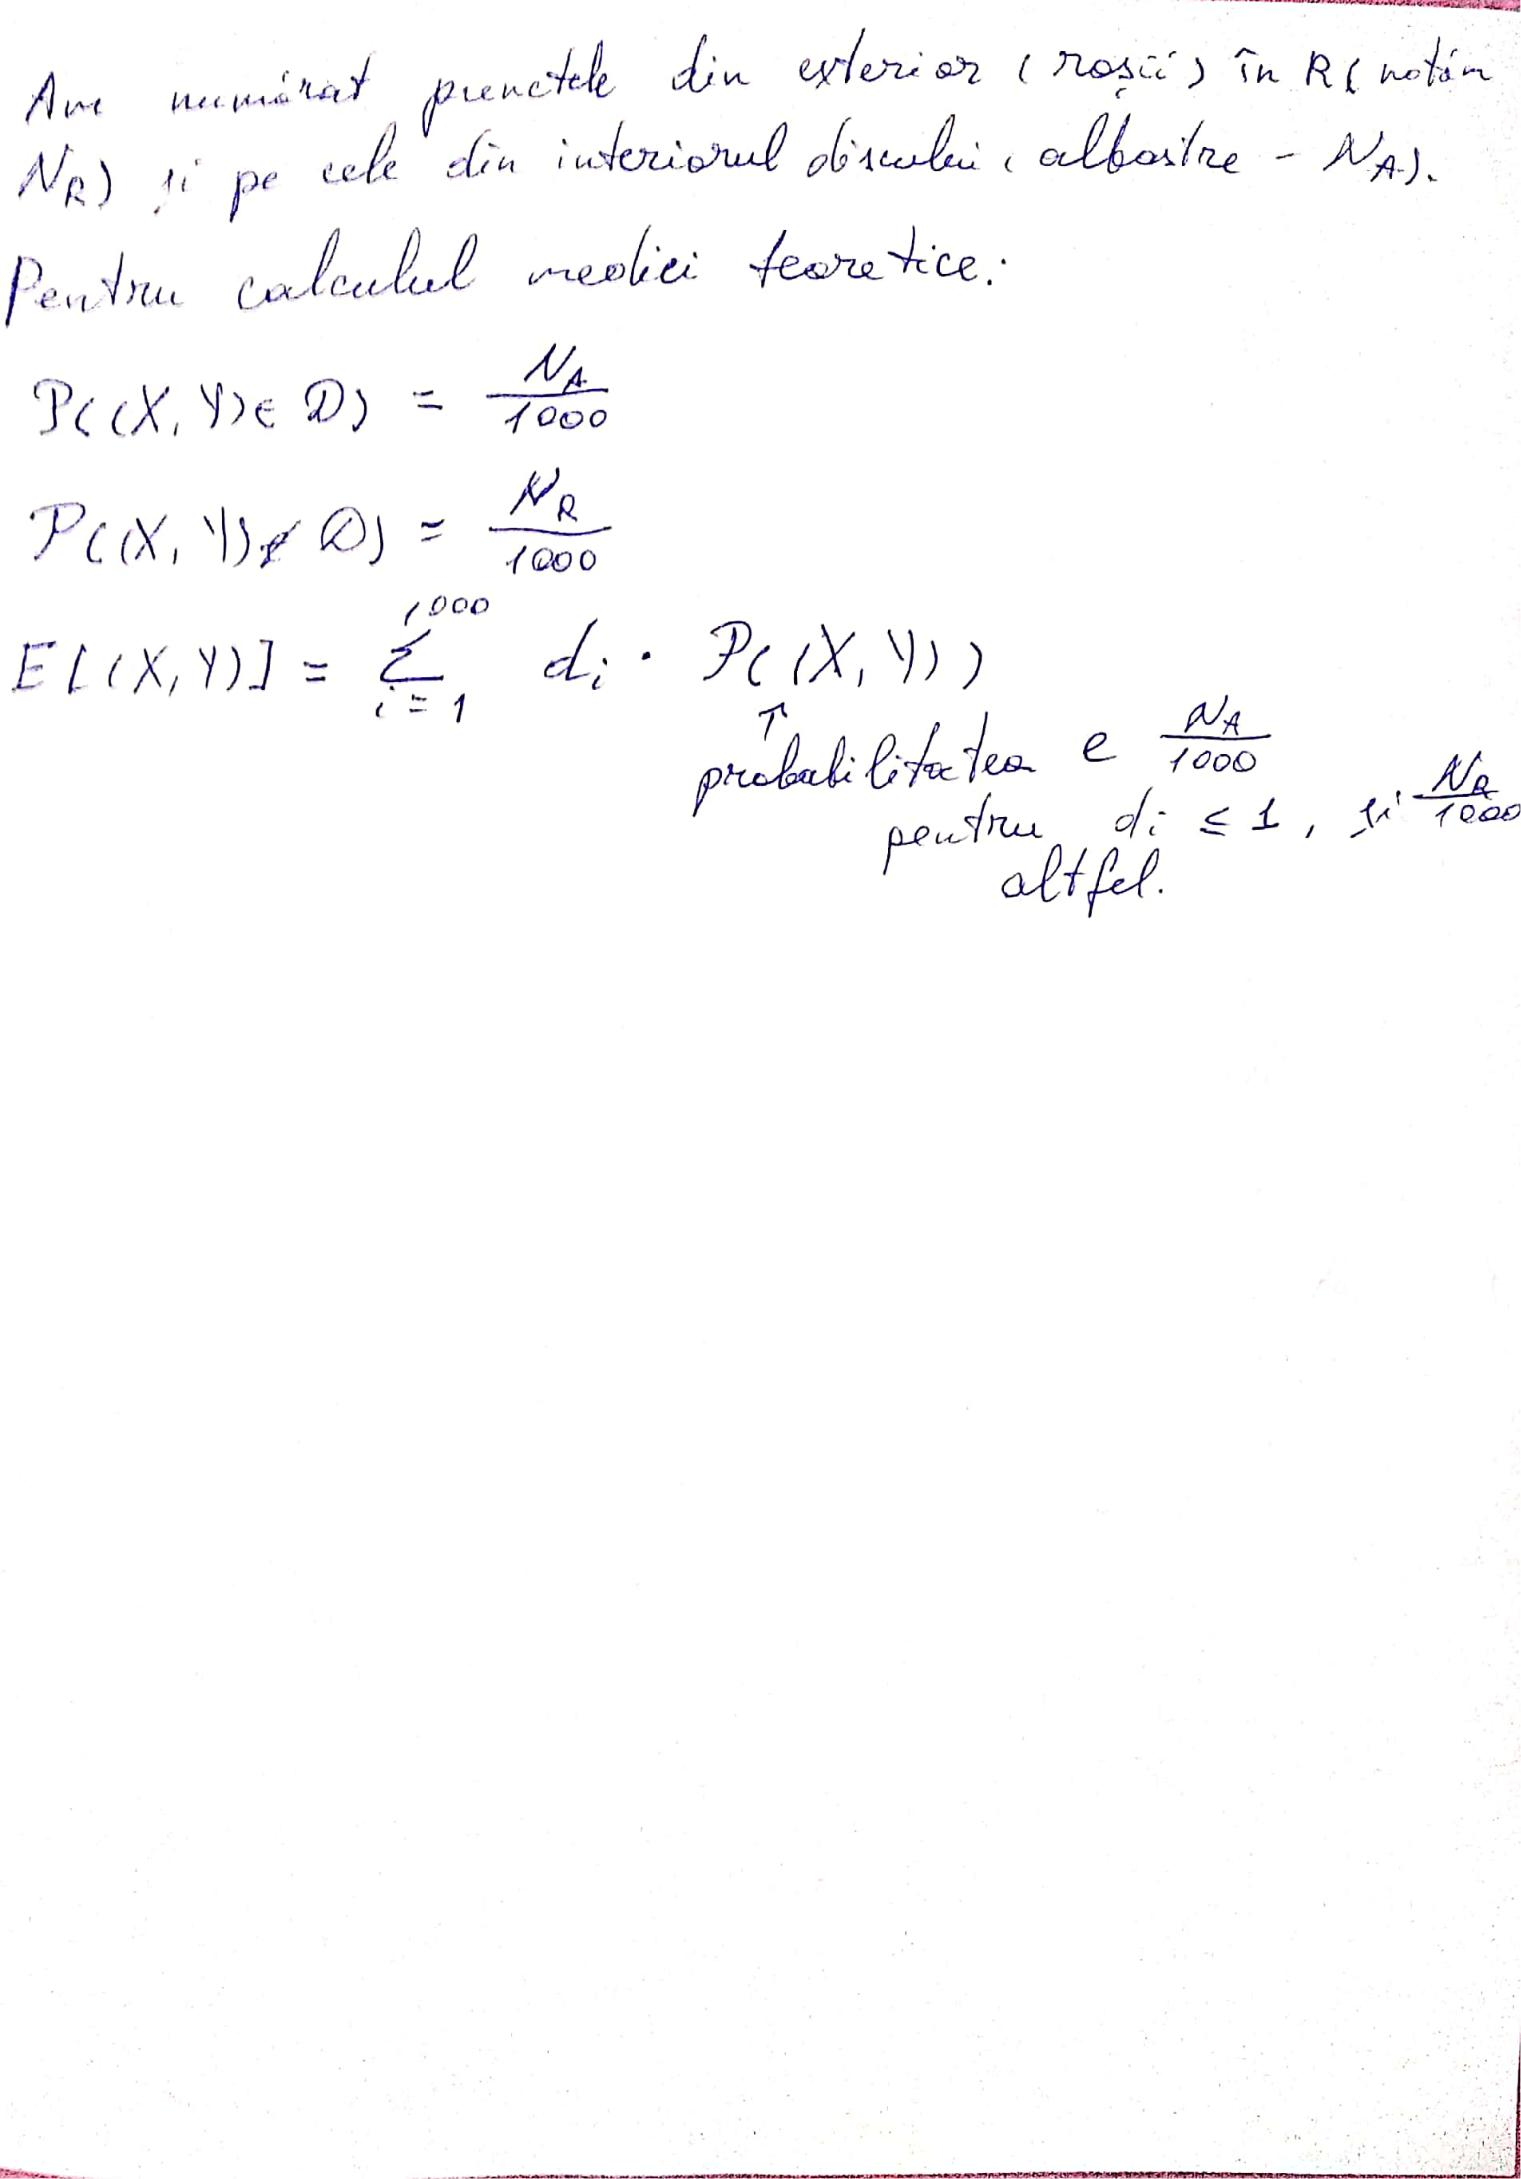 Am numărat punctele din exterior (roșii) în R (notăm
N_R) și pe cele din interiorul discului (albastre - N_A).
Pentru calculul mediei teoretice:
P((X, Y) ∈ D) = N_A / 1000
P((X, Y) ∉ D) = N_R / 1000
E[(X, Y)] = Σ_{i=1}^{1000} d_i · P((X, Y))
↑
probabilitatea e N_A / 1000
pentru d_i ≤ 1, și N_R / 1000
altfel.